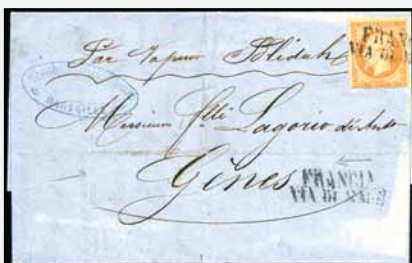 Par Vapeur Blidah
FRAN
VIA DI
Messieurs flli Lagorio di Anto
Gênes
FRANCIA
VIA DI MARE